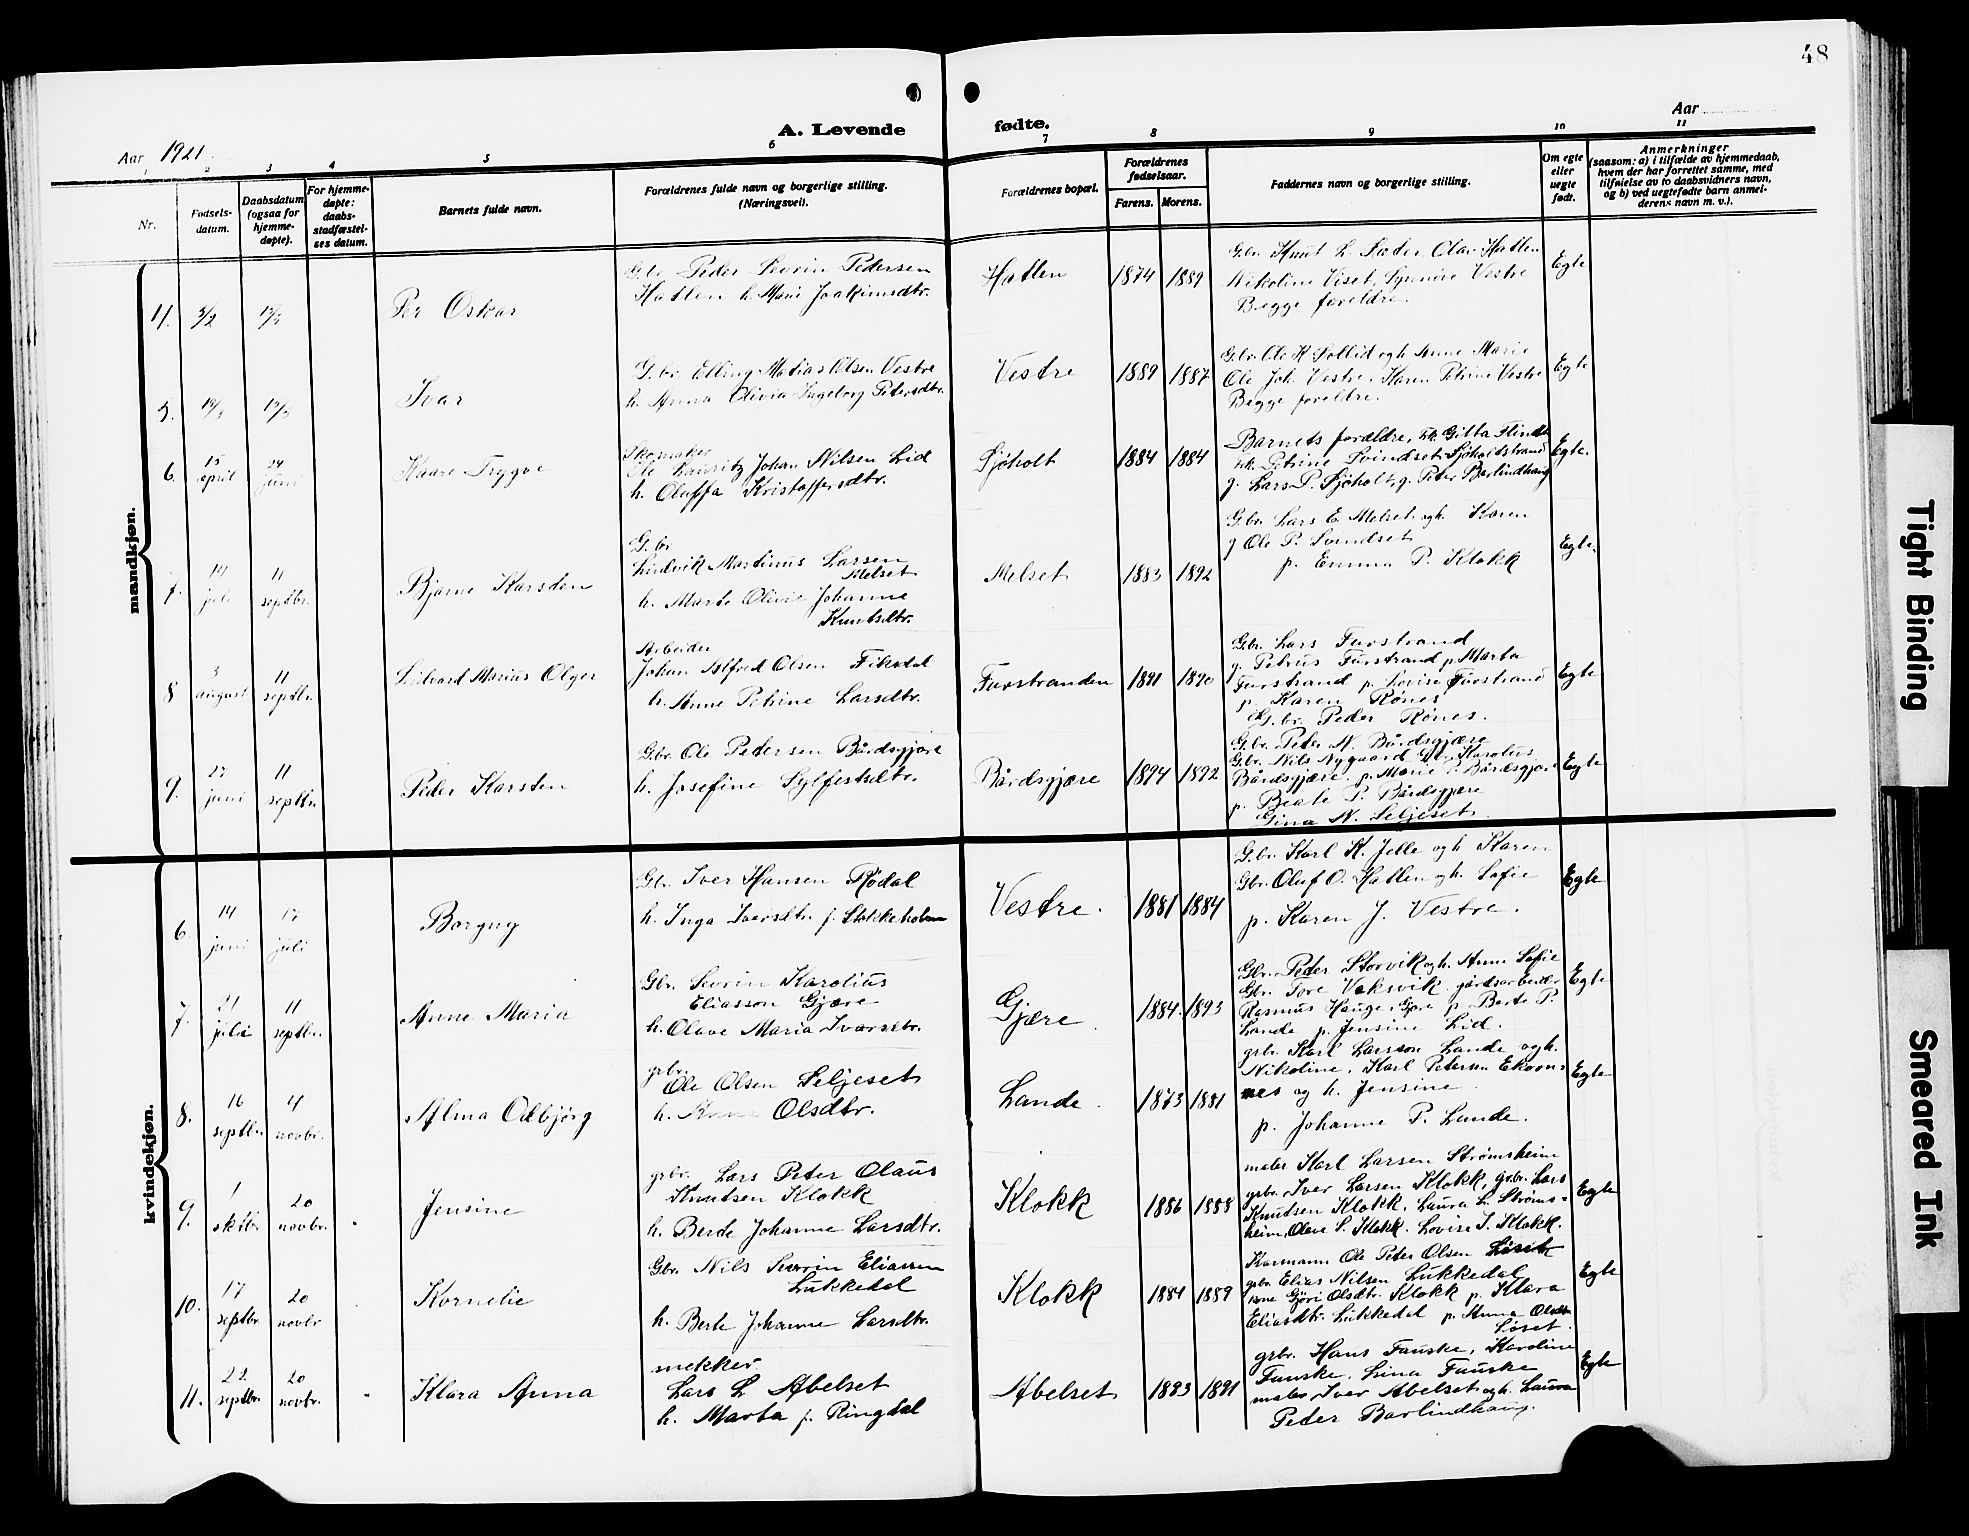 48
A. Levende fødte.
Aar 1921
Aar
1 2 3 4 5 6 7 8 9 10 11
Nr.
Fødsels-
datum.
Daabsdatum
(ogsaa for
hjemme-
døpte).
For hjemme-
døpte:
daabs-
stadfæstel-
ses datum.
Barnets fulde navn.
Forældrenes fulde navn og borgerlige stilling.
(Næringsvei).
Forældrenes bopæl.
Forældrenes
fødselsaar.
Farens. Morens.
Faddernes navn og borgerlige stilling.
Om egte
eller
uegte
født.
Anmerkninger
(saasom: a) i tilfælde av hjemmedaab,
hvem der har forrettet samme, med
tilføielse av to daabsvidners navn,
og b) ved uegtefødte barn anmel-
derens navn m. v.).
mandkjøn.
Per Oskar
Gbr. Peder Sevrin Pedersen
Hatlen h. Marie Joakimsdtr.
Hatlen
1874 1889
Gbr. Knut L. Sæter Olav Hatlen
Nikoline Viset, Synnöve Vestre
Begge foreldre.
Egte
5.
Ivar
G.br. Elling Matias Olsen Vestre
h. Anna Olivia Ingeborg Petersdtr.
Vestre
1889 1887
G.br. Ole K Sollid og h. Anne Marie
Ole Joh. Vestre. Karen Petrine Vestre
Begge foreldre.
Egte
6. 15 april 24 juni
Kaare Trygve
Skomaker
Ole Lauritz Johan Nilsen Lid
h. Oluffa Kristoffersdtr.
Sjöholt
1884 1884
Barnets forældre, frk. Gitta Flinder
frk. Petrine Svindset Sjöholtstrand
g. Lars P. Sjöholt, g. Peter Barlindhaug
Egte.
7. 14 juli 11 septbr.
Bjarne Karsten
G.br
Ludvik Martinus Larsen
Melset
h. Marte Olivie Johanne
Knutsdtr.
Melset
1883 1892
G.br Lars E. Melset og h. Karen
g Ole P. Svindset
p. Emma P. Klokk
Egte.
8 3 august 11 septbr.
Edvard Marius Olger
Arbeider
Johan Alfred Olsen Fiksdal
h. Anne Petrine Larsdtr.
Furstranden
1891 1890
Gbr. Lars Furstrand
g. Petrus Furstrand p. Marta
Furstrand p. Lovise Furstrand
p. Karen Rönes
G.br. Peder Rönes.
Egte
9. 27 juni 11 septbr.
Peder Karsten
Gbr. Ole Pedersen Bårdsgjære
h. Josefine Sylfestsdtr.
Bårdsgjære
1894 1892
G.br. Peter N. Bårdsgjære
Gbr. Nils Nygaard Gbr. Karolus
Bårdsgjære. p. Marie P. Bårdsgjære
p. Beate P. Bårdsgjære
Gina N. Seljeset.
Egte
kvindekjøn.
6. 14 juni 17 juli
Borgny
Gbr. Iver Hansen Rödal
h. Inga Iversdtr. f. Stokkeholm
Vestre.
1881 1884
G.br. Karl K. Jelle og h Karen
Gbr. Oluf O. Hatlen og h. Sofie
p. Karen J. Vestre.
Egte
7. 21 juli 11 septbr.
Anne Maria
Gbr. Sevrin Karolius
Eliasson Gjære
h. Olave Maria Ivarsdtr.
Gjære.
1884 1893
Gbr. Peder Storvik og h. Anne Sofie
Gbr. Tore Vaksvik. gårdsarbeider
Rasmus Hauge, Gjære p. Berte P.
Lande p. Jensine Lid.
Egte
8. 16 septbr. 4 novbr.
Alma Odbjörg
grbr.
Ole Olsen Seljeset
h. Olsdtr.
Lande.
1873 1881
grbr. Karl Larsson Lande og h.
Nikoline. Karl Petersen Ekorn-
nes og h. Jensine.
p. Johanne P. Lande.
Egte
9. 1 oktbr. 20 novbr.
Jensine
grbr. Lars Peter Olaus
Knutsen Klokk
h. Berte Johanne Larsdtr.
Klokk
1886 1888
maler Karl Larsen Strømsheim
grbr. Iver Larsen Klokk, grbr. Lars
Knudsen Klokk, Laura L. Strøms-
heim, Olave S. Klokk. Lovise I. Klokk.
Egte
10. 17 septbr. 20 novbr
Kornelie
Gbr. Nils Severin Eliassen
Lukkedal
h. Berte Johanne Larsdtr.
Klokk
1884 1889
Kasmann Ole Peter Olsen Löset
grbr. Elias Nilsen Lukkedal
Gjöri Olsdtr. Klokk p. Klara
Eliasdtr. Lukkedal p. Anna Olsdtr.
Löset.
Egte
11. 22. septbr. 20 novbr.
Klara Anna
snekker
Lars L Abelset
h. Marta f. Ringdal
Abelset
1893 1891
grbr. Hans Fauske, Karoline
Fauske, Lina Fauske
maler Iver Abelset og h. Laura
Peter Barlindhaug.
Egte
Tight Binding
Smeared Ink